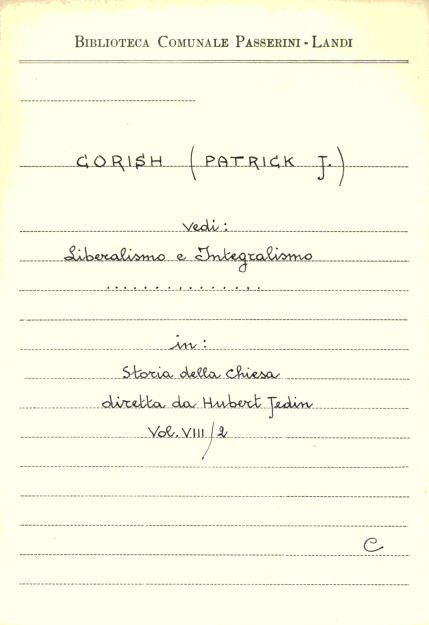 BIBLIOTECA COMUNALE PASSERINI-LANDI
CORISH (PATRICK J.)
vedi:
Liberalismo e Integralismo
...............
in:
Storia della Chiesa
diretta da Hubert Jedin
Vol. VIII/2
C